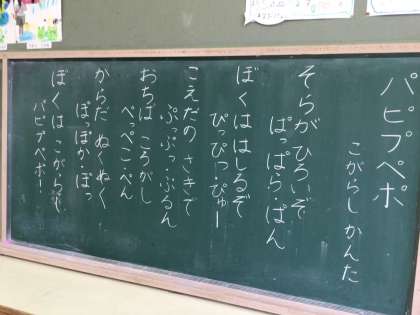 パピプペポ
こがらし かんた
そらが ひろいぞ
ぱっぱら・ぱん
ぼくは はしるぞ
ぴっぴっ・ぴゅー
こえだの さきで
ぷっぷっ・ぷるん
おちば ころがし
ぺっぺこ・ぺん
からだ ぬくぬく
ぽっぽか・ぽっ
ぼくは こがらし
パピプペポ!